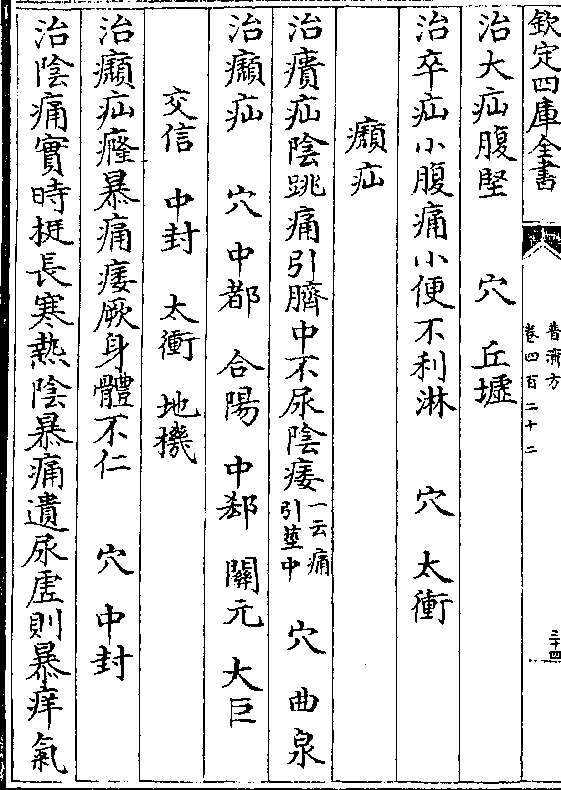 欽定四庫全書
普濟方
卷四百二十二
三十四
治大疝腹堅 穴 丘墟
治卒疝小腹痛小便不利淋 穴 太衝
㿗疝
治㿉疝陰跳痛引臍中不尿陰痿一云痛引莖中 穴 曲泉
治㿗疝 穴 中都 合陽 中郄 關元 大巨
交信 中封 太衝 地機
治㿗疝癃暴痛痿厥身體不仁 穴 中封
治陰痛實時挺長寒熱陰暴痛遺尿虛則暴痒氣